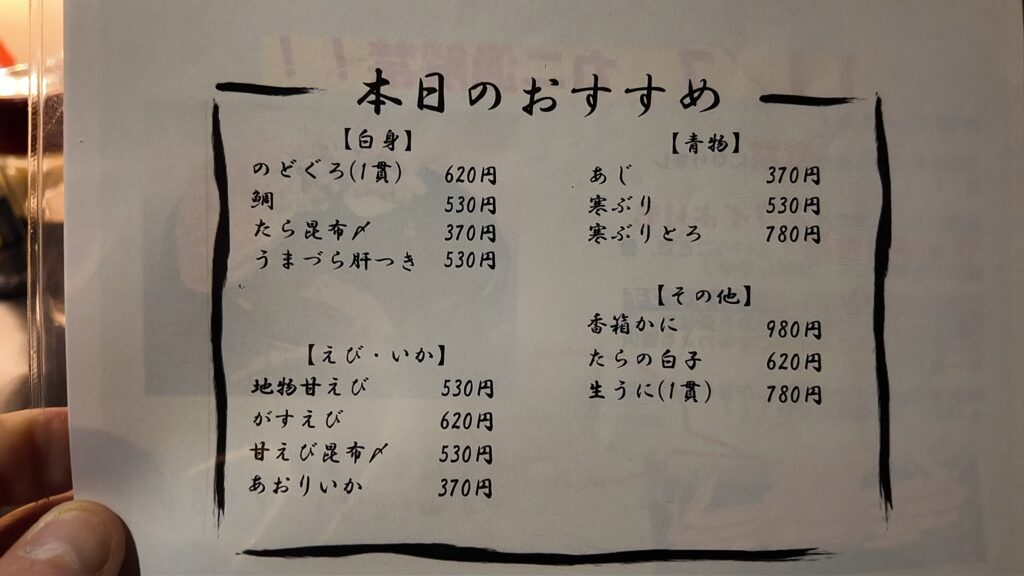 本日のおすすめ
【白身】
のどぐろ(1貫) 620円
鯛 530円
たら昆布〆 370円
うまづら肝つき 530円
【えび・いか】
地物甘えび 530円
がすえび 620円
甘えび昆布〆 530円
あおりいか 370円
【青物】
あじ 370円
寒ぶり 530円
寒ぶりとろ 780円
【その他】
香箱かに 980円
たらの白子 620円
生うに(1貫) 780円